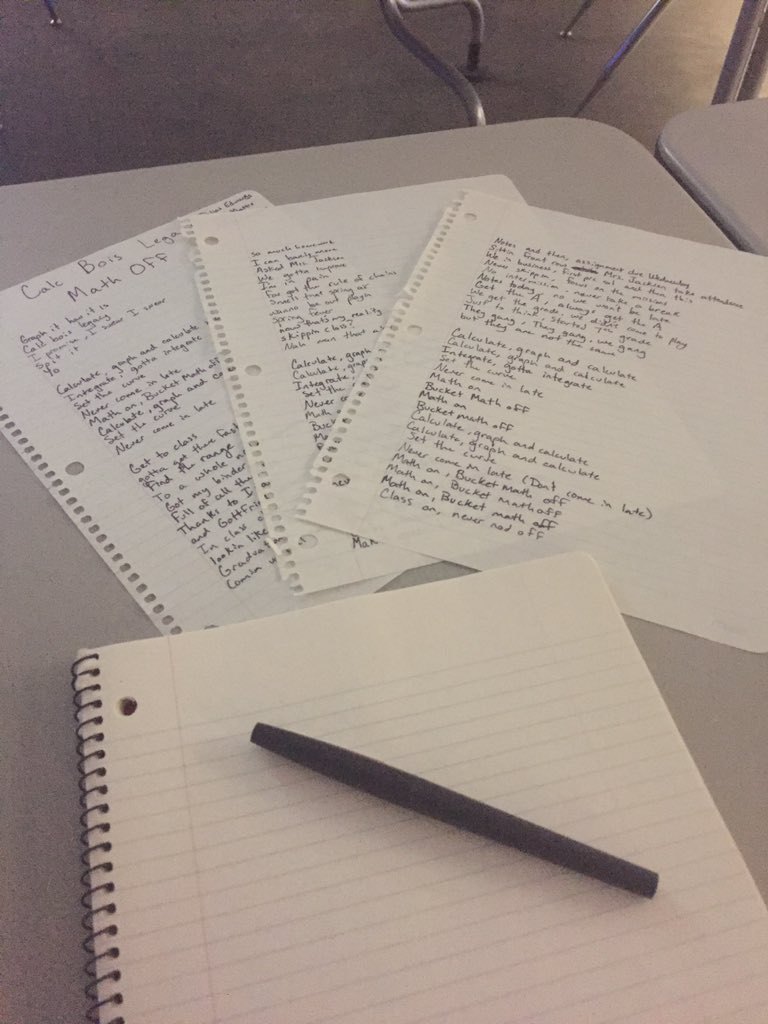 Calc Bois Lega
Math Off
Graph it how it is
Calc bois legacy
I promise, I swear I swear
Spit it
Yo
Calculate, graph and calculate
Integrate, gotta integrate
Set the curve
Never come in late
Math on, Bucket Math off
Calculate, graph and c
Set the curve
Never come in late
Get to class
gotta get there fast
Find the range
To a whole n
Got my binder
Full of all the
Thanks to I
and Gottfri
In class
lookin like
Graduat
Comin
So much homework
I can barely move
Asked Mrs. Jackson
We gotta improve
I'm in pain
Forgot the rule of chains
Smell that spring air
wanna be out playin
Spring fever
now that's my reality
skippin class?
Nah man that a
Calculate, graph
Calculate, grap
Integrate,
Set the
Never c
Math o
Buck
Ma
Man
Notes and then, assignment due Wednesday
Sittin front row Mrs. Jackson take attendance
We in business, first pre cal and then this
Never skippin, focus on the mission
No intermission, never take a break
Notes today, no we won't be late
Get the A, always get the A
We get the grade, we didnt come to play
Just to think, started 7th grade
They gang, They gang, we gang
but they are not the same
Calculate, graph and calculate
Calculate, graph and calculate
Integrate, gotta integrate
Set the curve
Never come in late
Math on
Bucket Math off
Math on
Bucket math off
Calculate, graph and calculate
Calculate, graph and calculate
Set the curve
Never come in late (Don't come in late)
Math on, Bucket math off
Math on, Bucket math off
Math on, Bucket math off
Class on, never nod off